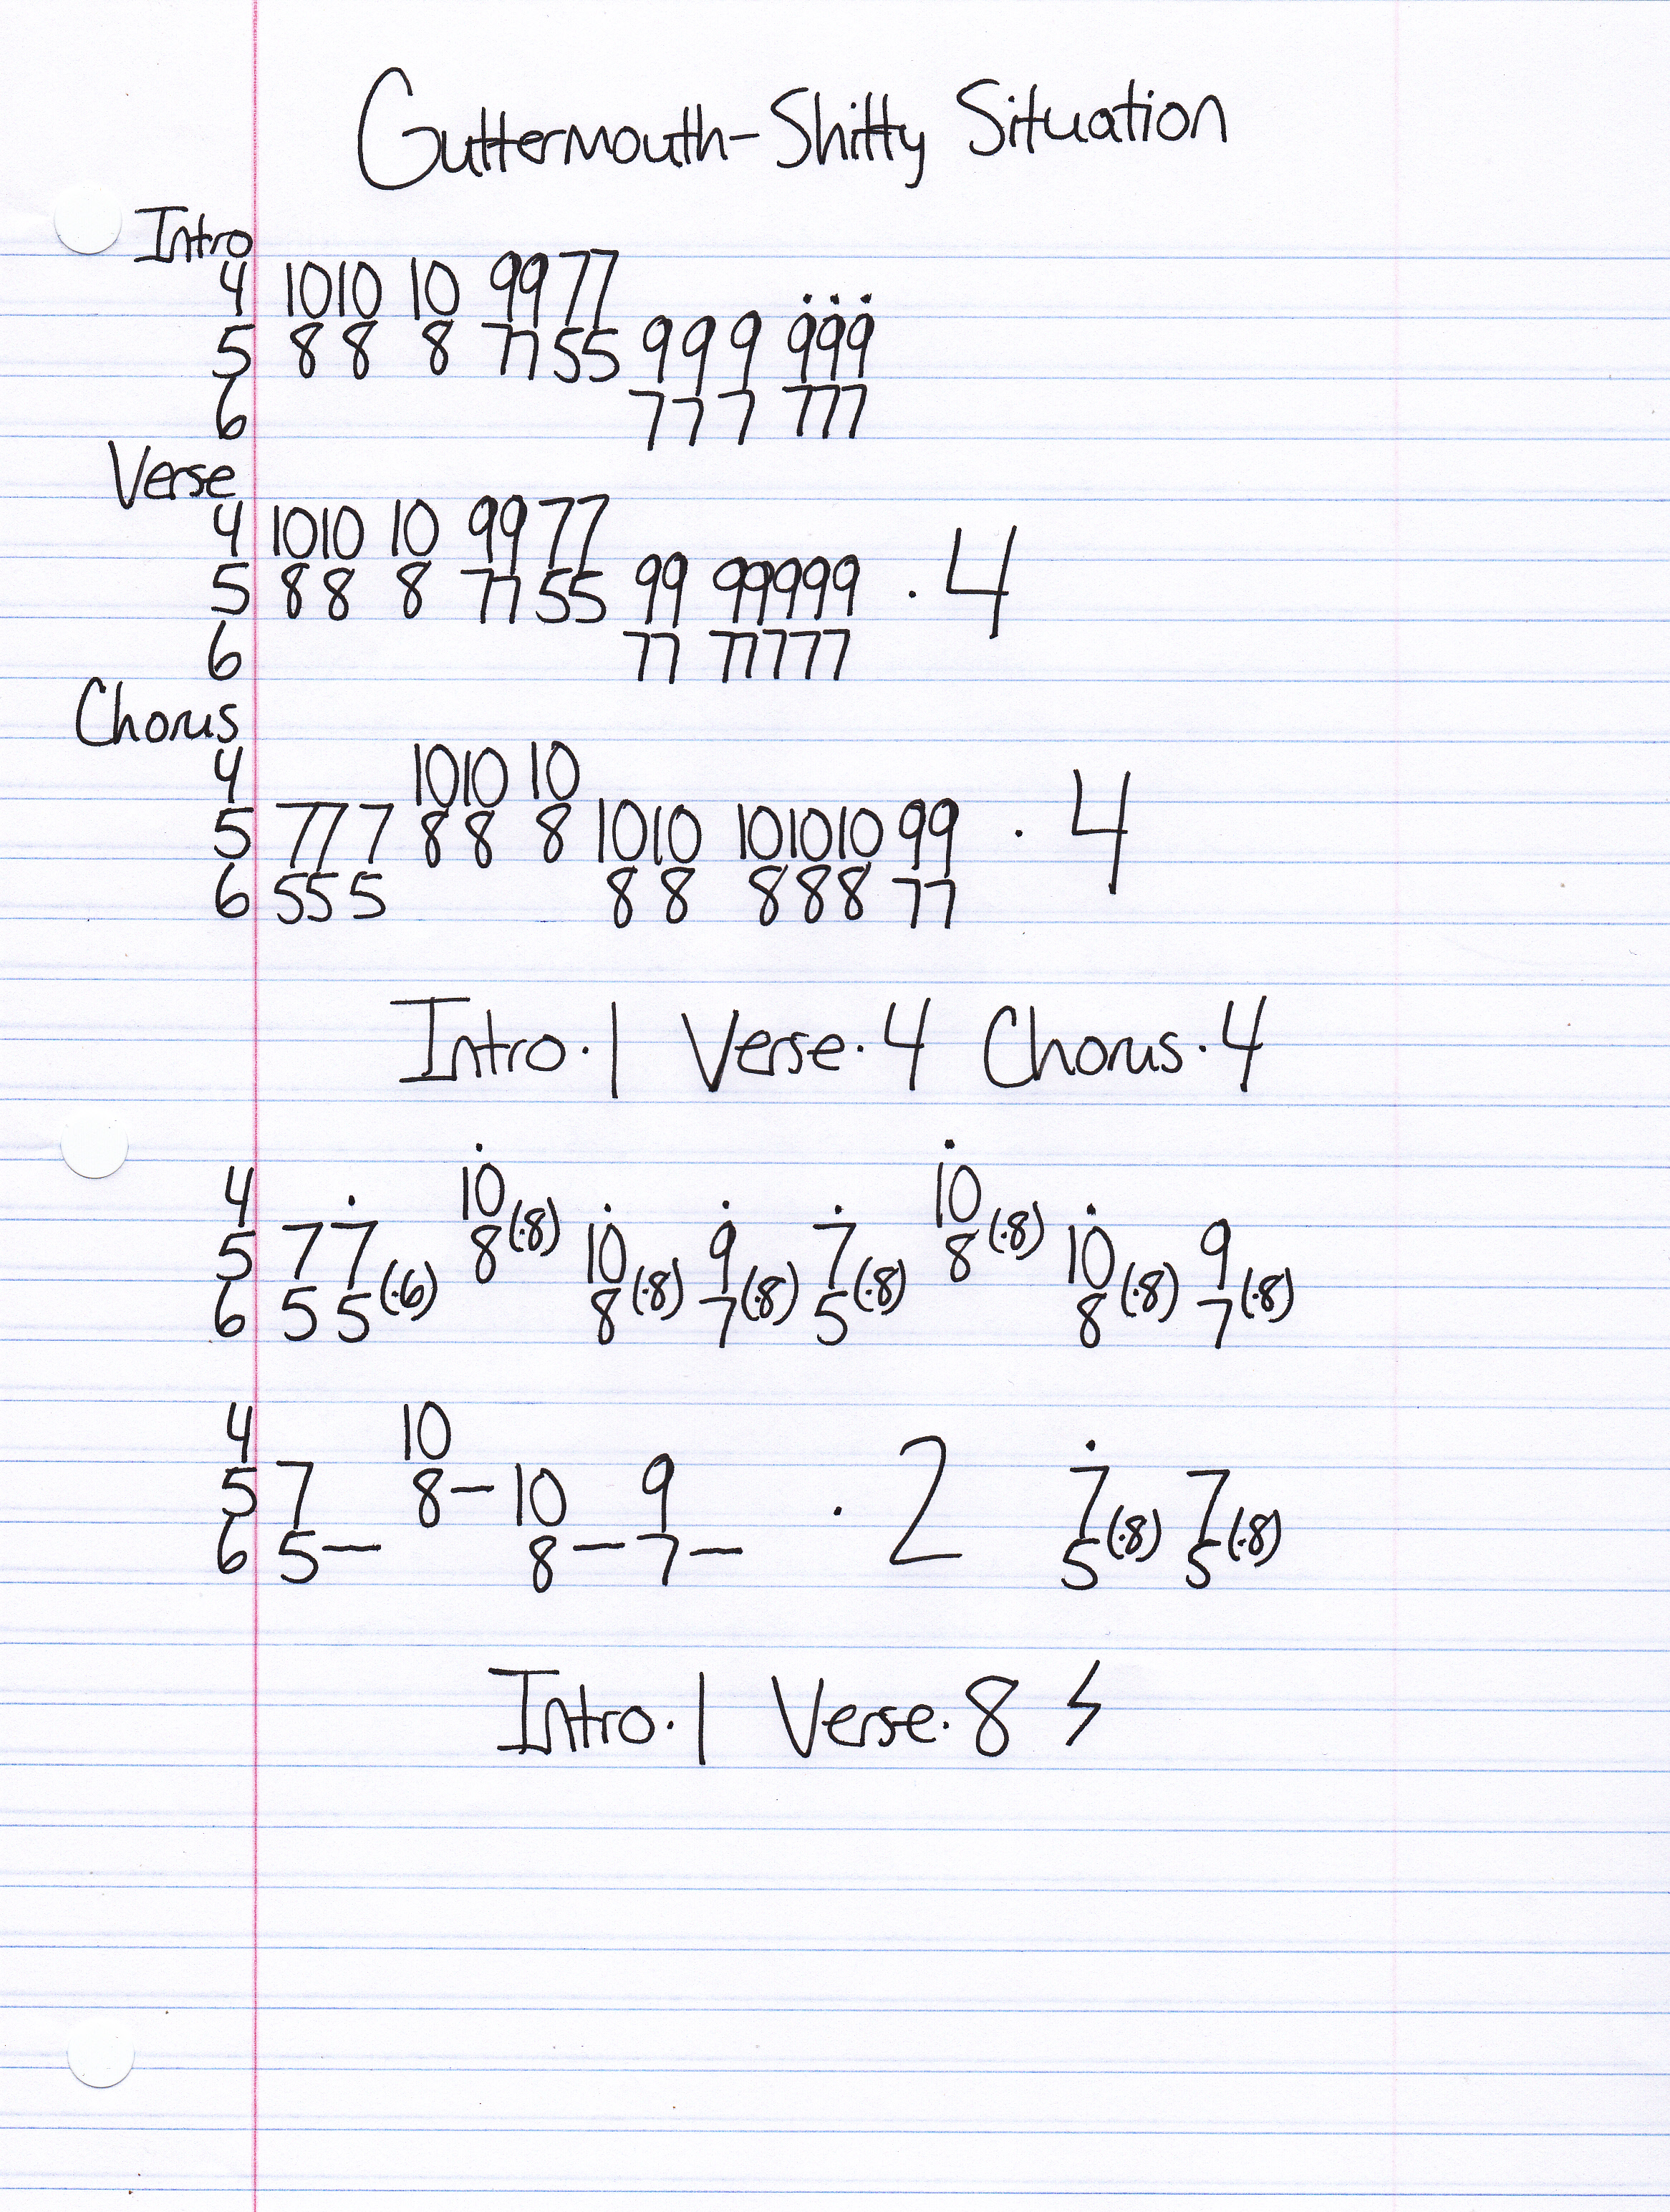 Guttermouth-Shitty Situation
Intro
4 10 10 10 99 77
5 8 8 8 77 55 9 9 9 999
6 7 7 7 777
Verse
4 10 10 10 99 77
5 8 8 8 77 55 99 99999 · 4
6 77 77777
Chorus
4 10 10 10
5 77 7 8 8 8 10 10 10 10 10 99 · 4
6 55 5 8 8 8 8 8 77
Intro·1 Verse·4 Chorus·4
4 10 10
5 7 7 8(·8) 10 9 7 8(·8) 10 9
6 5 5(·6) 8(·8) 7(·8) 5(·8) 8(·8) 7(·8)
4 10
5 7 8– 10 9 · 2 7 7
6 5– 8– 7– 5(·8) 5(·8)
Intro·1 Verse·8